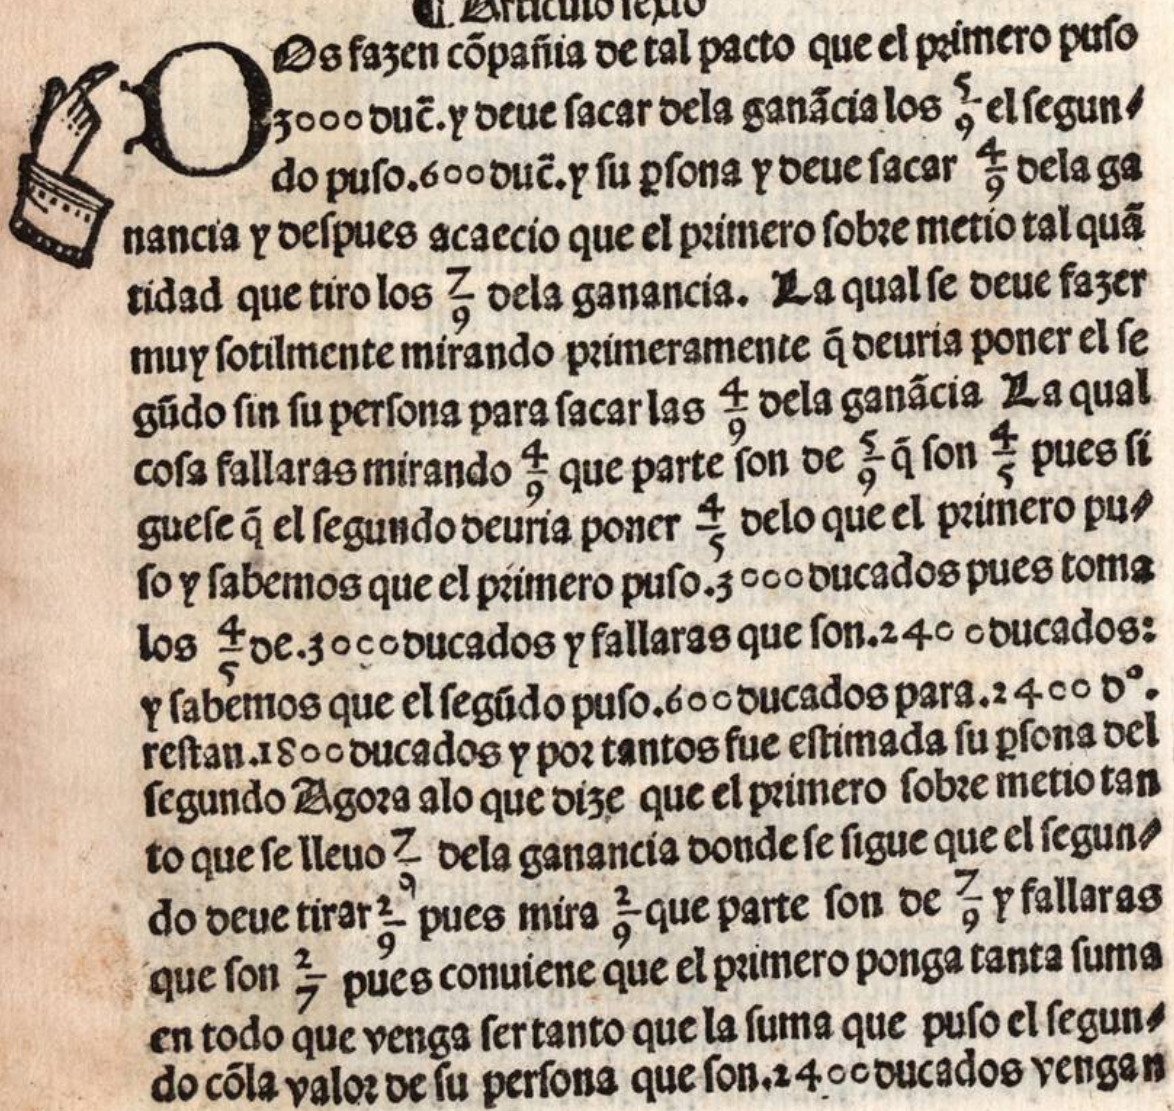 ¶ Articulo sexto
DOs fazen cõpañia de tal pacto que el primero puso
3000 duc̃. y deue sacar dela ganãcia los 5/9 el segun/
do puso.600 duc̃. y su ꝑsona y deue sacar 4/9 dela ga
nancia y despues acaecio que el primero sobre metio tal quã
tidad que tiro los 7/9 dela ganancia. La qual se deue fazer
muy sotilmente mirando primeramente q̃ deuria poner el se
gũdo sin su persona para sacar las 4/9 dela ganãcia La qual
cosa fallaras mirando 4/9 que parte son de 5/9 q̃ son 4/5 pues si
guese q̃ el segundo deuria poner 4/5 delo que el primero pu/
so y sabemos que el primero puso.3000 ducados pues toma
los 4/5 de.3000 ducados y fallaras que son.2400 ducados:
y sabemos que el segũdo puso.600 ducados para.2400 dº.
restan.1800 ducados y por tantos fue estimada su ꝑsona del
segundo Agora alo que dize que el primero sobre metio tan
to que se lleuo 7/9 dela ganancia donde se sigue que el segun/
do deue tirar 2/9 pues mira 2/9 que parte son de 7/9 y fallaras
que son 2/7 pues conuiene que el primero ponga tanta suma
en todo que venga ser tanto que la suma que puso el segun/
do cõla valor de su persona que son.2400 ducados vengan